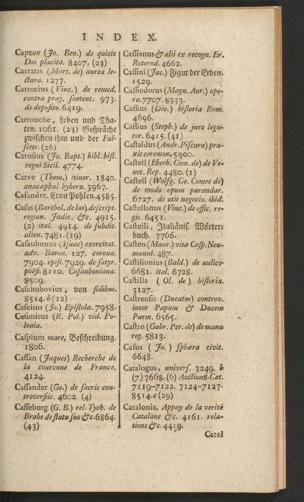 INDEX.
Capzov (Jo. Ben.) de quiete
Dei placita. 8407. (23)
Carraris (Marc. de) aurea le-
ctura. 1277.
Carrotius (Vinc.) de remed.
contra præj. sentent. 973.
de deposito. 6419.
Cartouche, Leben und Tha-
ten. 1061. (23) Gespräche
zwischen ihm und der Fal-
sette. (26)
Carusius (Jo. Bapt.) bibl. hist.
regni Sicil. 4774.
Carve (Thom.) itiner. 1840.
anacephal. hybern. 3967.
Casander, Cron Pohlen. 4585.
Casas (Barthol. de las) descript.
region. Indic. &c. 4915.
(2) ital. 4914. de subdit.
alien. 7481. (19)
Casaubonus (Isaac) exercitat.
adv. Baron. 127. corona.
7904. epist. 7929. de satyr.
poësi. 8110. Casauboniana.
8509.
Caschubovius, von fidibus.
8514. b (12)
Caselius (Jo.) Epistolæ. 7958.
Casimirus (R. Pol.) vid. Po-
lonia.
Caspium mare, Beschreibung.
1806.
Cassan (Jaques) Recherche de
la couronne de France.
4124.
Cassander (Ge.) de sacris con-
troversiis. 4602. (4)
Casseburg (G. B.) rel. Tych. de
Brahe de statu suo &c. 6864.
(43)
Cassianus & alii ex recogn. Er.
Roterod. 4662.
Cassini (Jac.) Figur der Erden.
1529.
Cassiodorus (Magn. Aur.) ope-
ra. 7707. 8333.
Cassius (Dio.) historia Rom.
4696.
Cassius (Steph.) de jure lega-
tor. 6415. (41)
Castaldus (Andr. Piscara) pra-
xis ceremon. 5900.
Castell (Eberh. Com. de) de Ve-
net. Rep. 4480. (1)
Castell (Wolfg. Ge. Comes de)
de modo opum parandar.
6727. de otii negotio. ibid.
Castellanus (Vinc.) de offic. re-
gis. 6451.
Castelli, Italiänis. Wörter-
buch. 7766.
Casten (Maur.) vita Casp. Neu-
manni. 487.
Castilionius (Bald.) de aulico
6681. ital. 6728.
Castilia (Ol. de) historia.
3127.
Castrensis (Ducatus) controv.
inter Papam & Ducem
Parm. 6565.
Castro (Gabr. Per. de) de manu
reg. 5813.
Casus (Jo.) sphæra civit.
6648.
Catalogus, univers. 3249. b
(7) 7668. (6) Auctions-Cat.
7119-7122. 7124-7127.
8514. e (29)
Catalonia, Appuy de la verité
Catalane &c. 4161. rela-
tions &c. 4459.
Catel